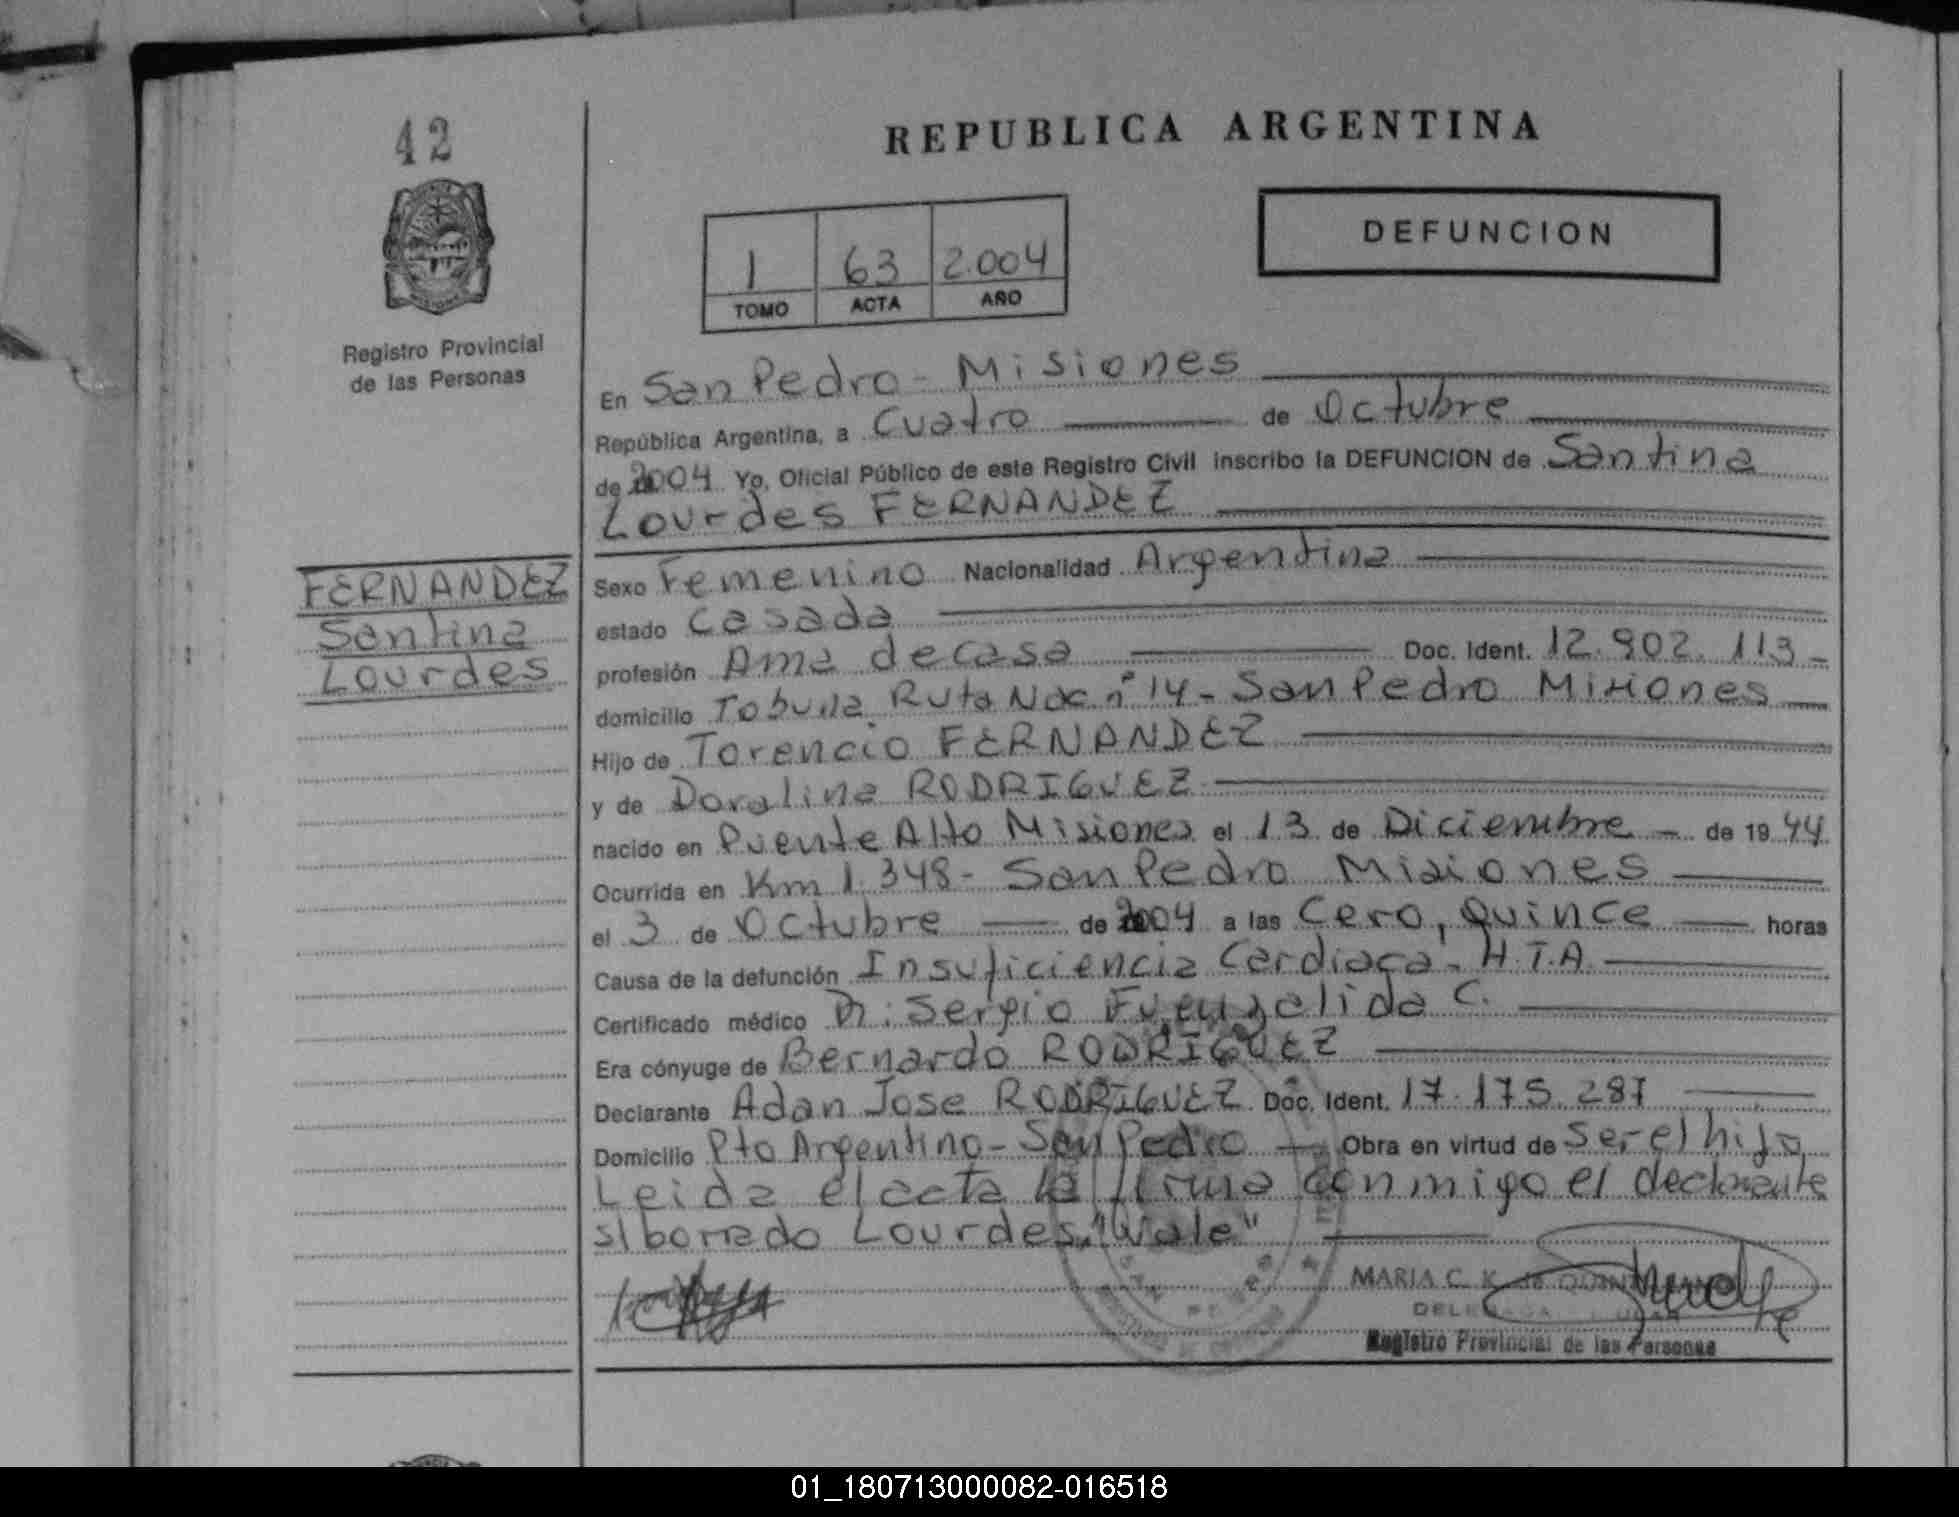 42
REPUBLICA ARGENTINA
DEFUNCION
1 63 2.004
TOMO ACTA AÑO
Registro Provincial
de las Personas
En San Pedro - Misiones
República Argentina, a Cuatro de Octubre
de 2004 Yo, Oficial Público de este Registro Civil inscribo la DEFUNCION de Santina
Lourdes FERNANDEZ
FERNANDEZ
Santina
Lourdes
Sexo Femenino Nacionalidad Argentina
estado Casada
profesión Ama de casa Doc. Ident. 12.902.113 -
domicilio Tobuna Ruta Nac nº 14 - San Pedro Misiones
Hijo de Torencio FERNANDEZ
y de Doralina RODRIGUEZ
nacido en Puente Alto Misiones el 13 de Diciembre - de 1944
Ocurrida en Km 1.348 - San Pedro Misiones
el 3 de Octubre de 2004 a las Cero, Quince horas
Causa de la defunción Insuficiencia Cardiaca - H.T.A.
Certificado médico Dr: Sergio Fuenzalida C.
Era cónyuge de Bernardo RODRIGUEZ
Declarante Adan Jose RODRIGUEZ Doc. Ident. 17.175.287
Domicilio Pto Argentino - San Pedro Obra en virtud de Ser el hijo
Leida el acta la firma conmigo el declarante
s/borrado Lourdes "Vale"
MARIA C. K. de
Registro Provincial de las Personas
01_180713000082-016518